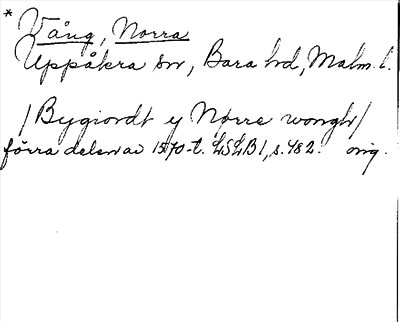 * Vång, Norra
Uppåkra sn, Bara hd, Malm. l.
/Bygiordt y Nørre wongh/
förra delen av 1570-t. LSLB 1, s. 482. orig.